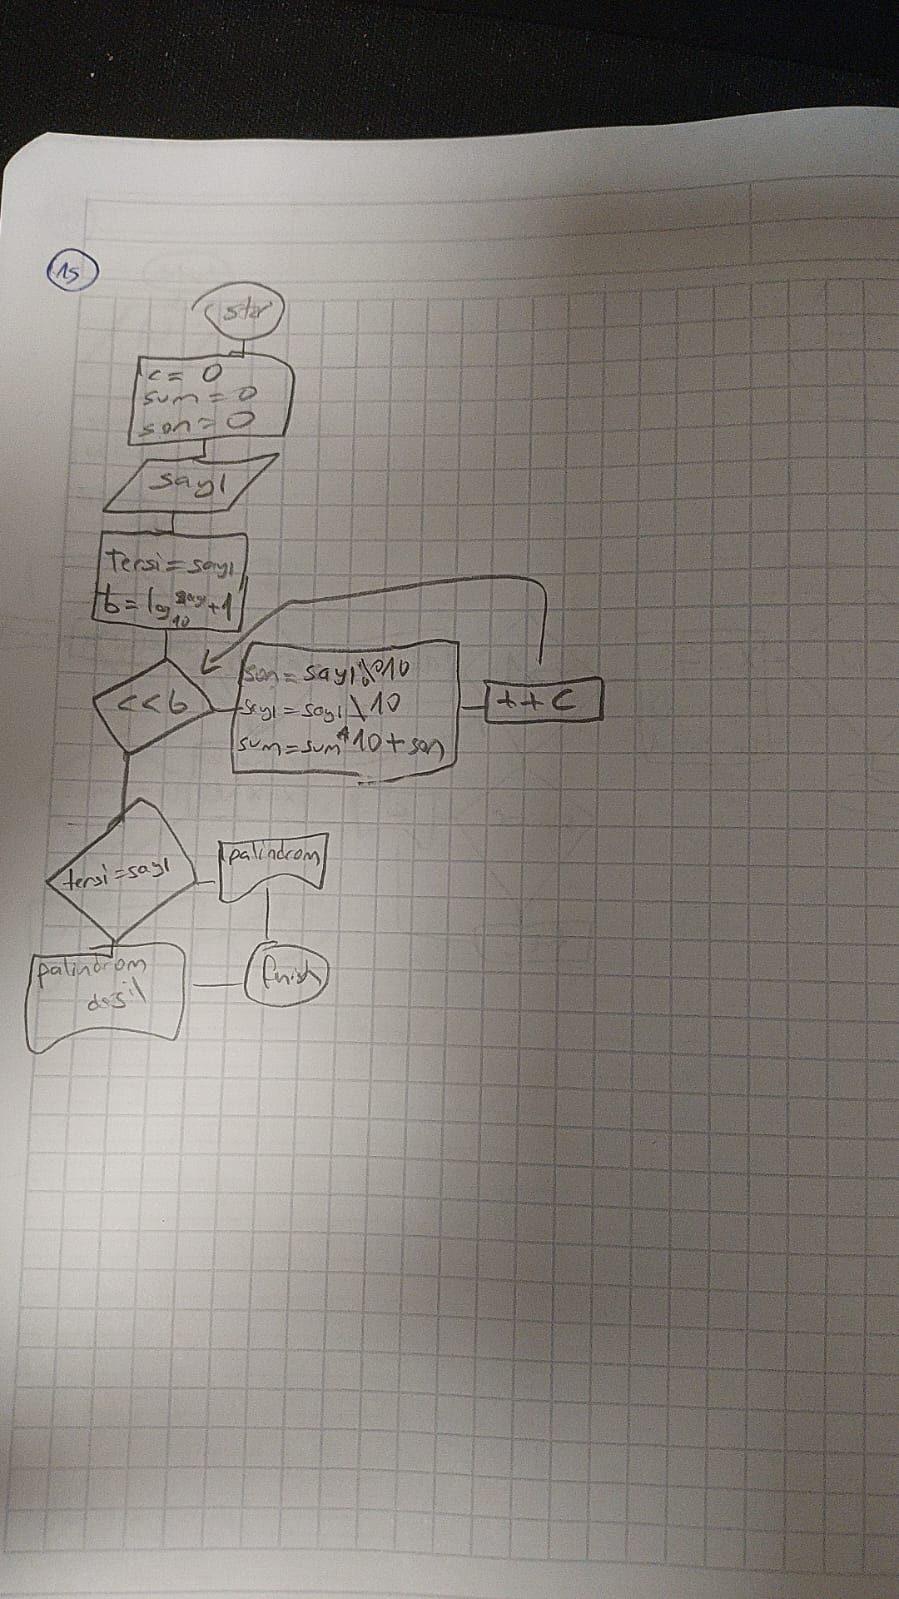 15
star
c = 0
sum = 0
son = 0
sayı
Tersi = sayı
b = log10 sayı + 1
c < b
son = sayı % 10
sayı = sayı \ 10
sum = sum * 10 + son
++c
tersi = sayı
palindrom
palindrom
değil
finish